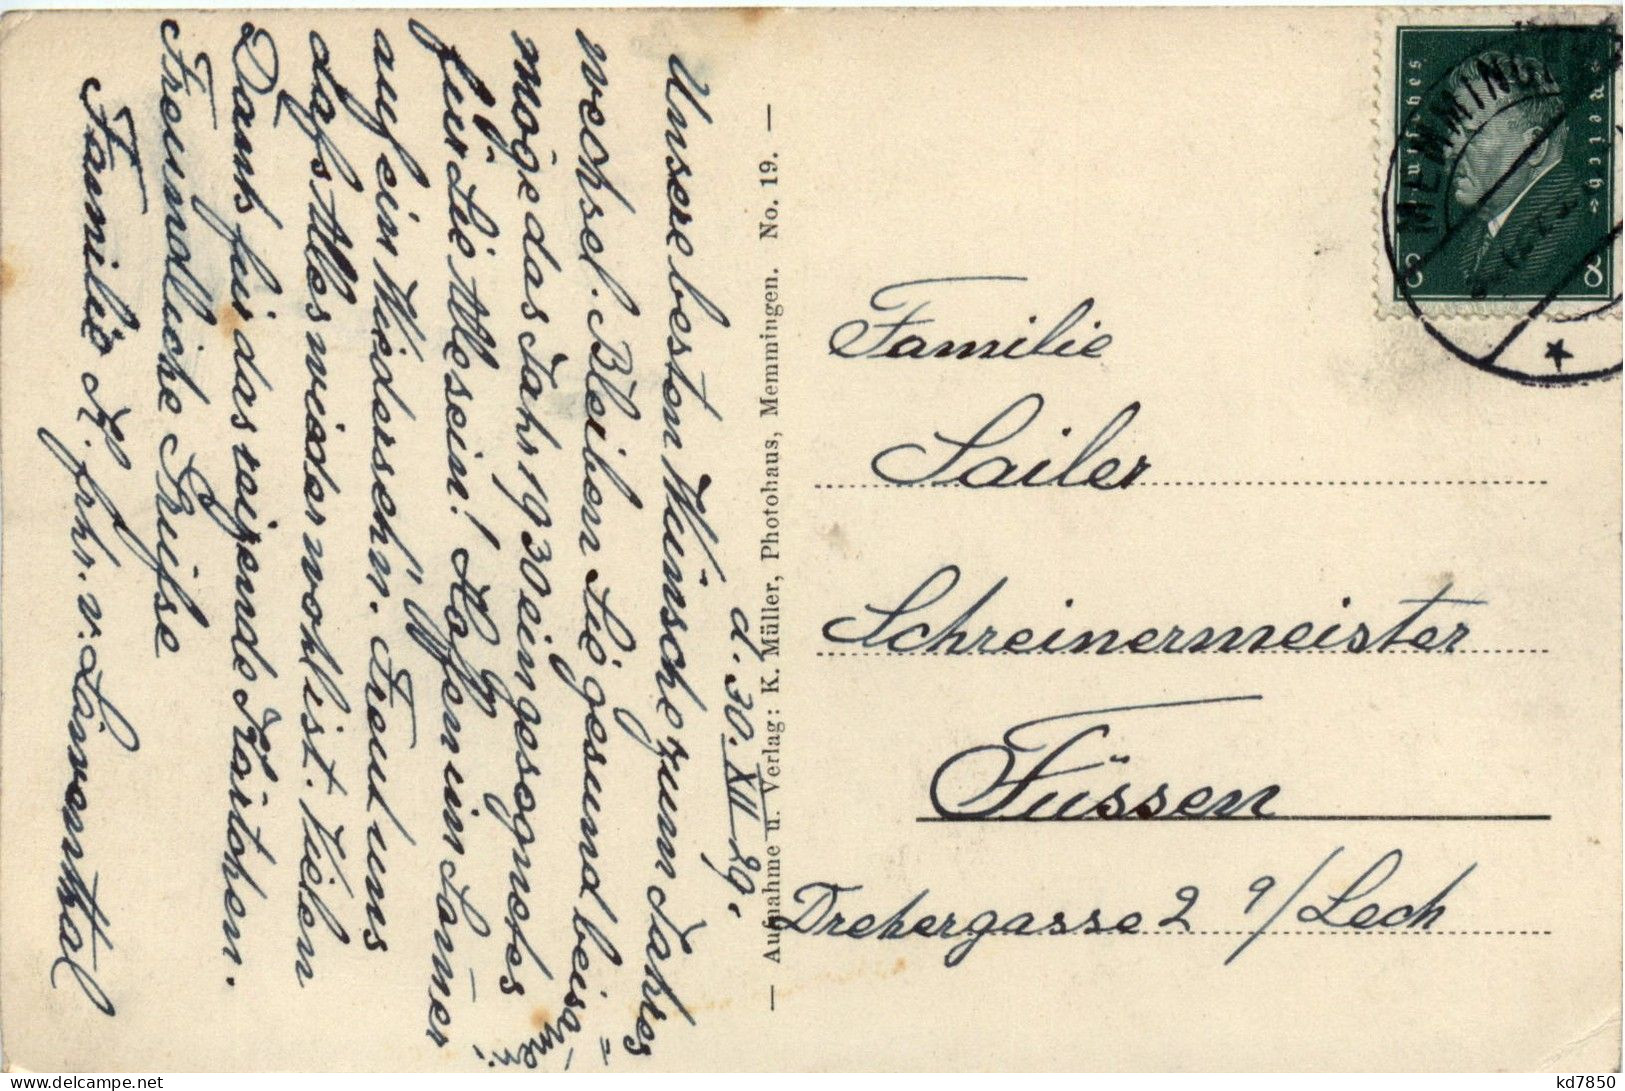 d. 30. XII 29.
Unsere besten Wünsche zum Jahres
wechsel. Bleiben Sie gesund beisa=
men.
möge das Jahr 1930 ein gesegnetes
für Sie Alle sein! Hoffen im Sommer
auf ein Wiedersehn. Freut uns
daß Alles wieder wohl ist. Vielen
Dank für das reizende Kärtchen.
Freundliche Grüße
Familie K. frhr. v. Linventhal
— Aufnahme u. Verlag: K. Müller, Photohaus, Memmingen. No. 19. —
Deutsches Reich
8 8
MEMMINGEN
Familie
Sailer
Schreinermeister
Füssen
Drehergasse 2 a/Lech
delcampe.net
kd7850